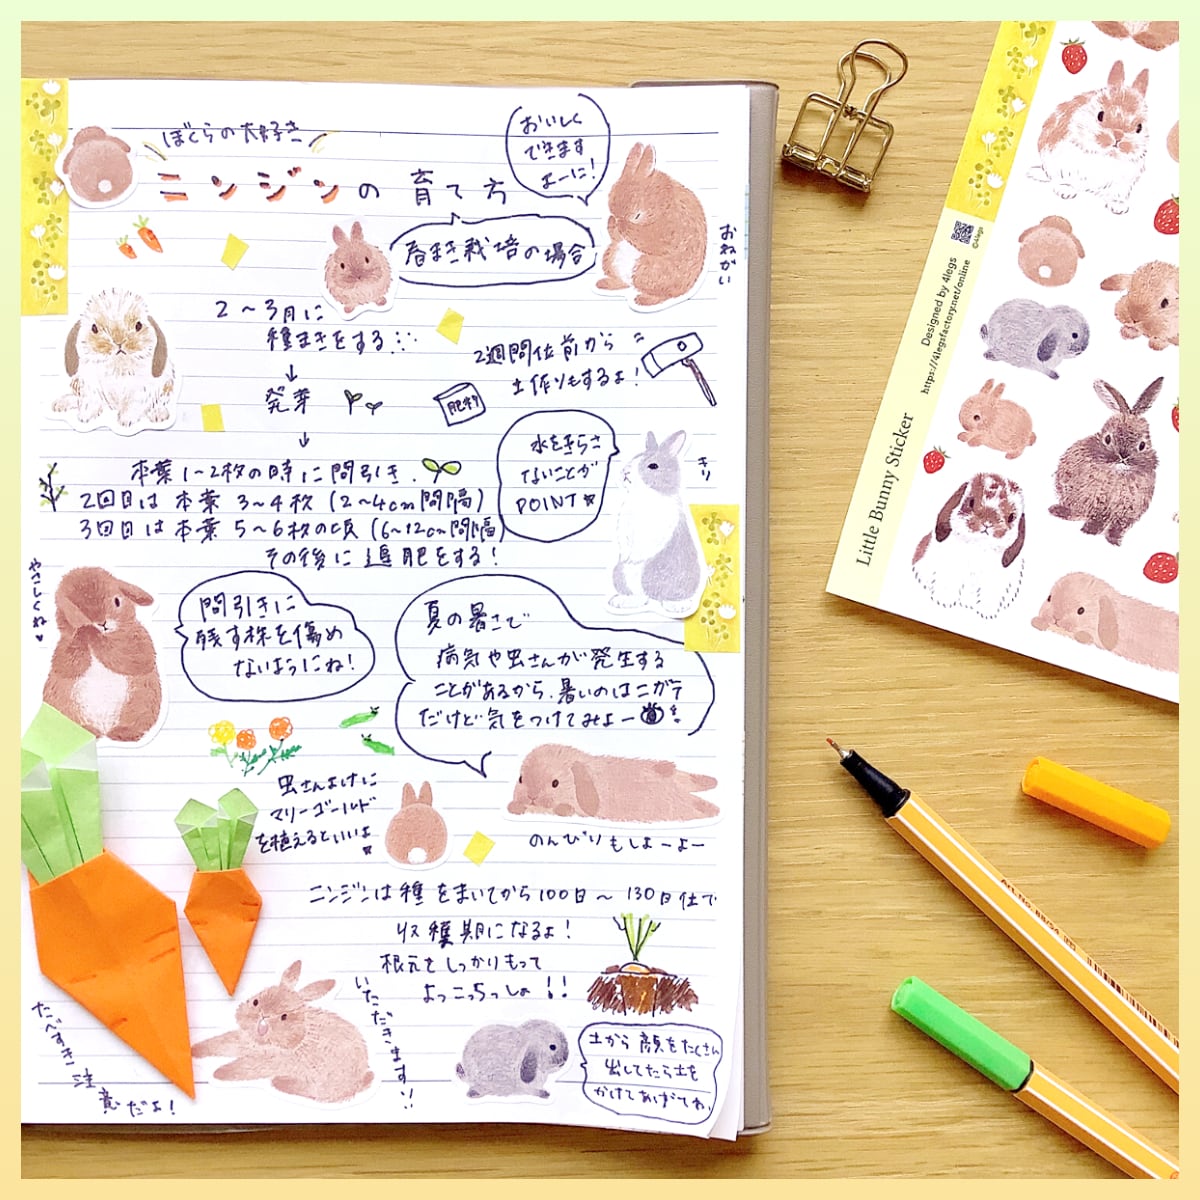 ぼくらの大好き
ニンジンの育て方
おいしく
できます
よーに!
春まき栽培の場合
おねがい
2〜3月に
種まきをする
↓
発芽
↓
2週間位前から
土作りもするよ!
肥料
本葉1〜2枚の時に間引き.
2回目は本葉3〜4枚(2〜4cm間隔)
3回目は本葉5〜6枚の頃(6〜12cm間隔)
その後に追肥をする!
水をきらさ
ないことが
POINT☆
きり
やさしくね♥
間引きに
残す株を傷め
ないようにね!
夏の暑さで
病気や虫さんが発生する
ことがあるから、暑いのはニガテ
だけど気をつけてみよー
虫さんよけに
マリーゴールド
を植えるといいよ
のんびりもしよーよー
ニンジンは種をまいてから100日〜130日位で
収穫期になるよ!
根元をしっかりもって
よっこらっしょ!!
いただきます!!
たべすぎ注意だよ!
土から顔をたくさん
出してたら土を
かけてあげてね。
Little Bunny Sticker
Designed by 4legs
https://4legsfactory.net/online
©4legs
Art.No. 88/54